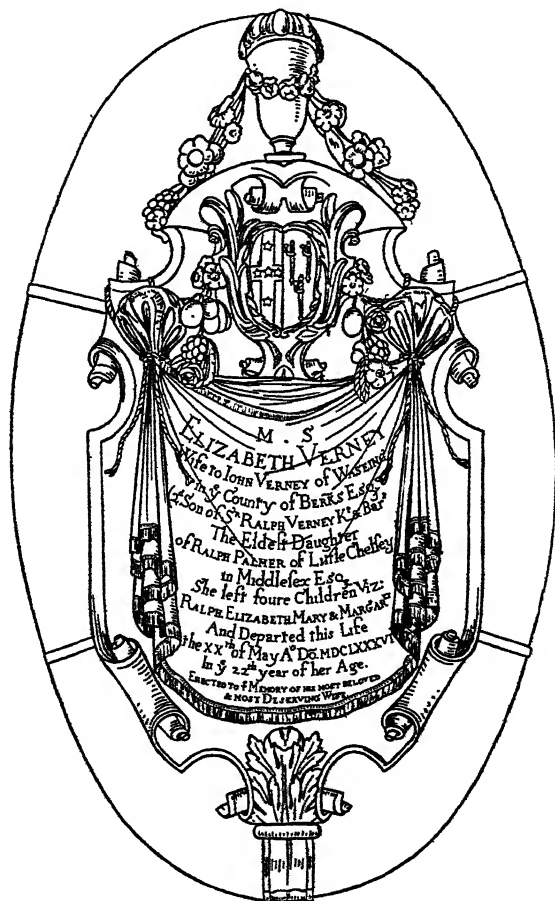 M . S
ELIZABETH VERNEY
Wife to IOHN VERNEY of WASEING
in yͤ County of BERKS Esqʳ
Son of Sʳ RALPH VERNEY Kᵗ & Barᵗ
The Eldeſt Daughter
of RALPH PALMER of Little Chelſey
in Middleſex Esqʳ
She left foure Children Viz:
RALPH ELIZABETH MARY & MARGARᵀ
And Departed this Life
the XXᵗʰ of May Aº Dō: MDCLXXXVI
In yͤ 22ᵗʰ year of her Age.
ERECTED TO yͤ MEMORY OF HIS MOST BELOVED
& MOST DESERVING WIFE